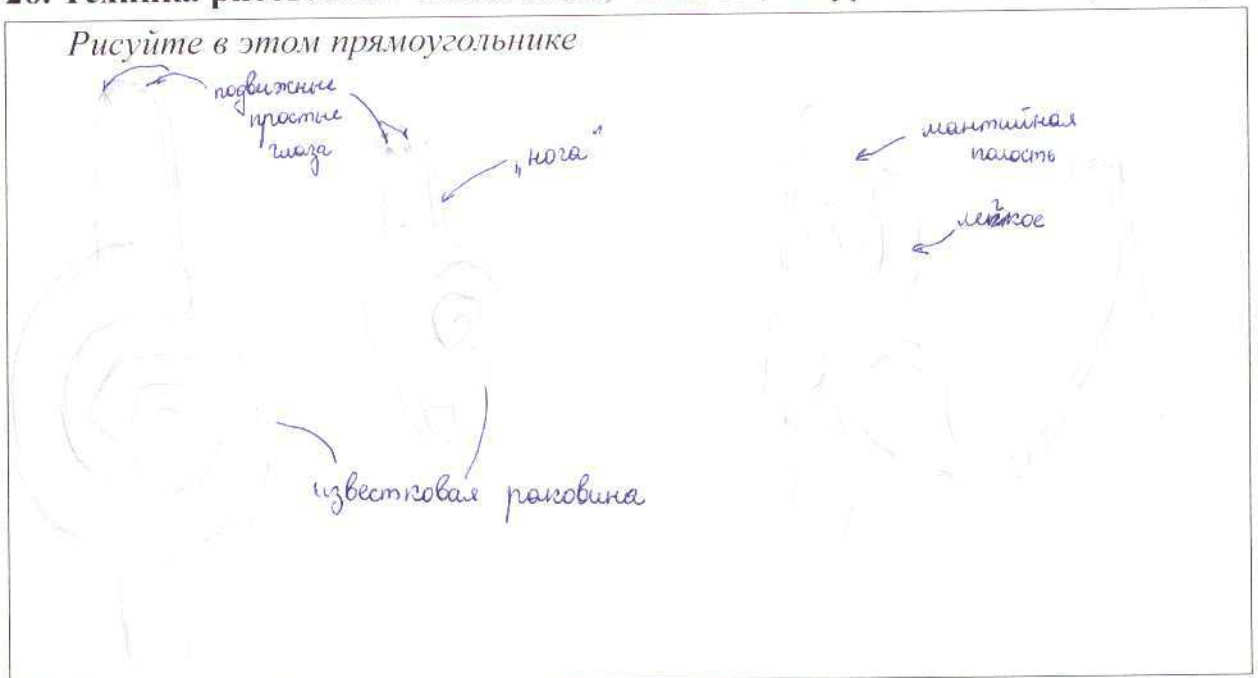 Рисуйте в этом прямоугольнике
подвижные
простые
глаза
„нога“
мантийная
полость
легкое
известковая раковина